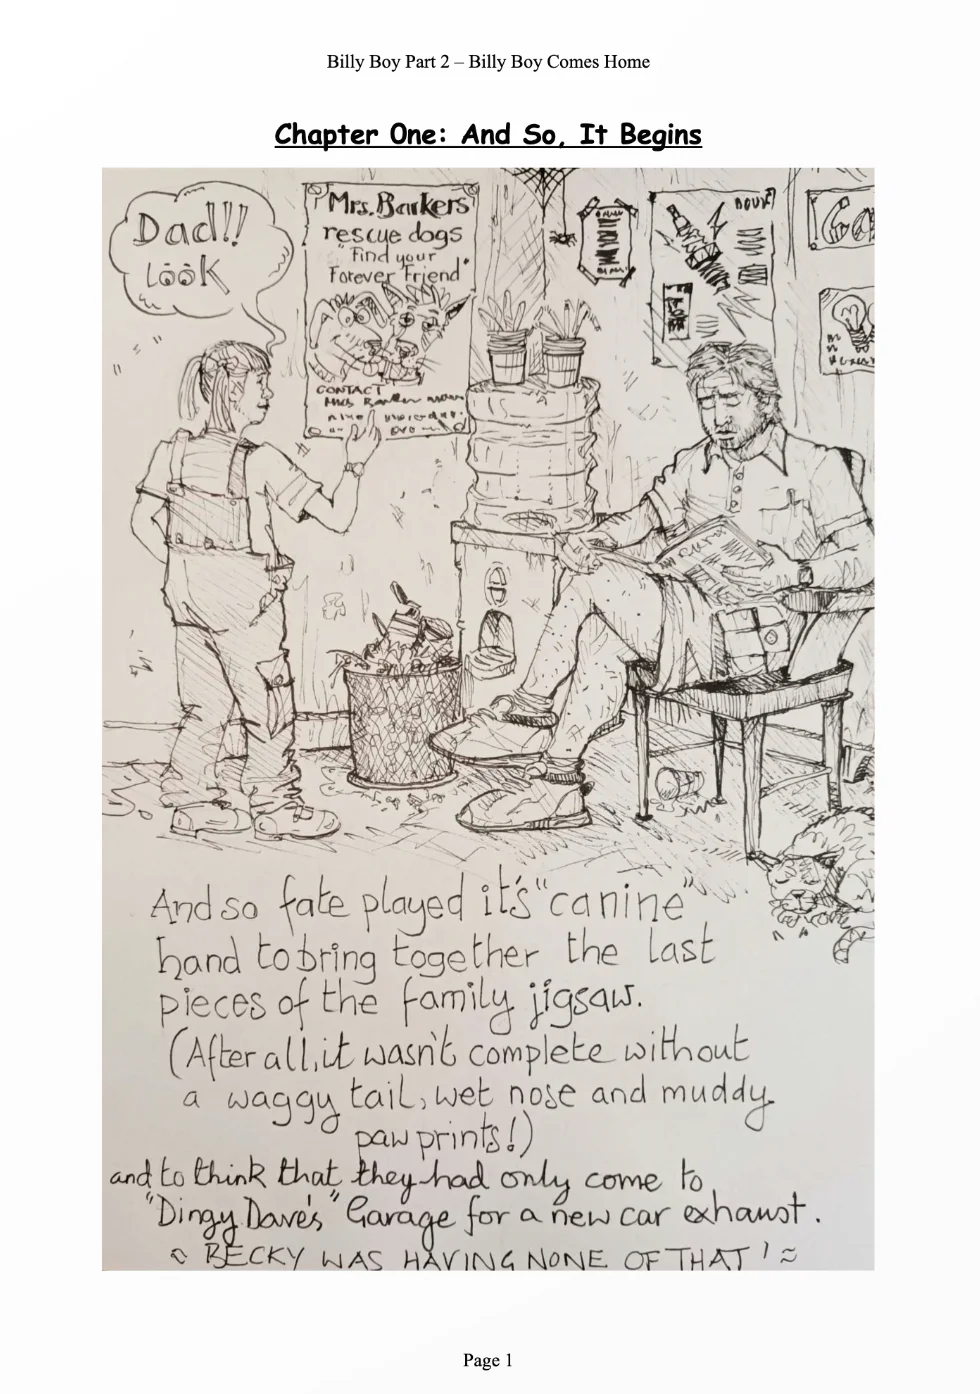 Billy Boy Part 2 – Billy Boy Comes Home
Chapter One: And So, It Begins
Dad!!
LOOK
Mrs. Barkers
rescue dogs
"Find your
Forever Friend"
CONTACT
Mrs Barker
And so fate played it's "canine"
hand to bring together the last
pieces of the family jigsaw.
(After all, it wasn't complete without
a waggy tail, wet nose and muddy
paw prints!)
and to think that they had only come to
"Dingy Dave's" Garage for a new car exhaust.
~ BECKY WAS HAVING NONE OF THAT! ~
Page 1